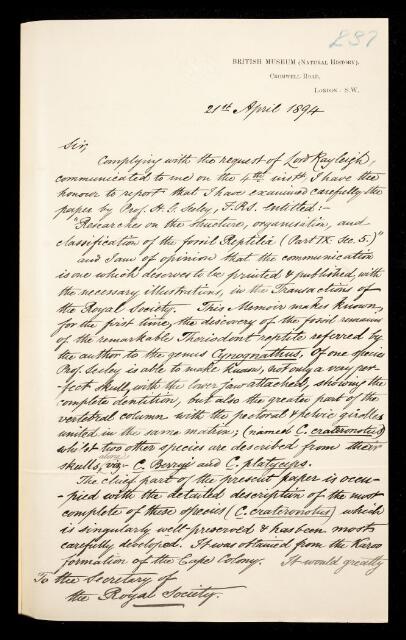 237
BRITISH MUSEUM (NATURAL HISTORY),
CROMWELL ROAD,
LONDON: S.W.
21st April 1894
Sir,
Complying with the request of Lord Rayleigh,
communicated to me on the 4th inst. I have the
honour to report that I have examined carefully the
paper by Prof. H. G. Seeley, F.R.S. entitled:-
"Researches on the structure, organisation, and
classification of the fossil Reptilia (Part IX. Sec. 5.)"
and I am of opinion that the communication
is one which deserves to be printed & published, with
the necessary illustrations, in the Transactions of
the Royal Society. This Memoir makes known,
for the first time, the discovery of the fossil remains
of the remarkable Theriodont reptile referred by
the author to the genus Cynognathus, of one species
Prof. Seeley is able to make known, not only a very per-
-fect skull, with the lower jaw attached, showing the
complete dentition, but also the greater part of the
vertebral column with the pectoral & pelvic girdles
united in the same matrix; (named C. crateronotus)
whilst two other species are described from their
skulls, alone viz:- C. Berryi and C. platyceps.
The chief part of the present paper is occu-
-pied with the detailed description of the most
complete of these species (C. crateronotus) which
is singularly well-preserved & has been most
carefully developed. It was obtained from the Karoo
formation of the Cape Colony. It would greatly
To the Secretary of
the Royal Society.